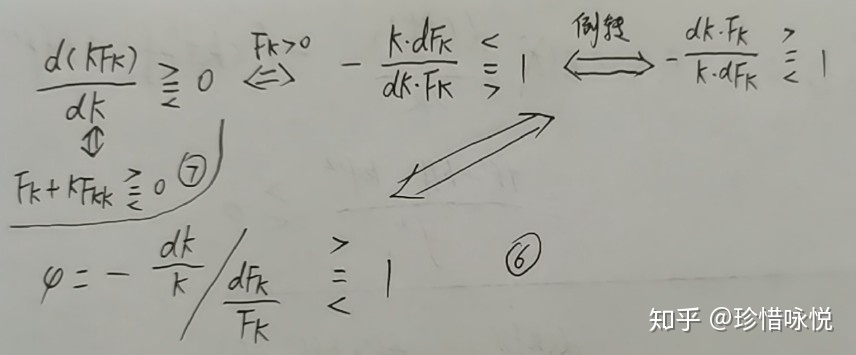 d(KFK)/dK ⋛ 0 ⟺ (FK>0) - K·dFK/dK·FK ⋚ 1 ⟺ (倒转) - dK·FK/K·dFK ⋛ 1
⇕
FK+KFKK ⋛ 0 ⑦
φ = - dK/K / dFK/FK ⋛ 1 ⑥
知乎 @珍惜咏悦